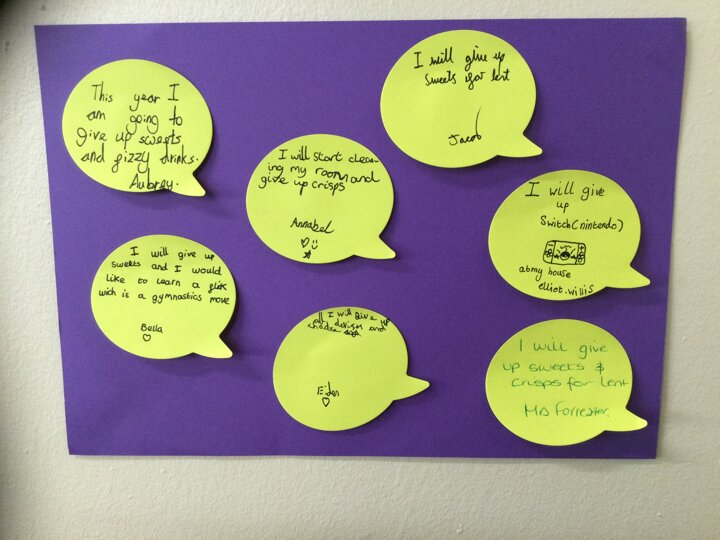 This year I
am going to
give up sweets
and fizzy drinks.
Aubrey.
I will give up
sweets for lent
Jacob
I will start clean-
ing my room and
give up crisps
Annabel
I will give
up
Switch(nintendo)
at my house
elliot.willis
I will give up
sweets and I would
like to learn a flick
wich is a gymnastics move
Bella
I will give up
all devices and
Eden
I will give
up sweets &
crisps for lent
Mrs Forrester.